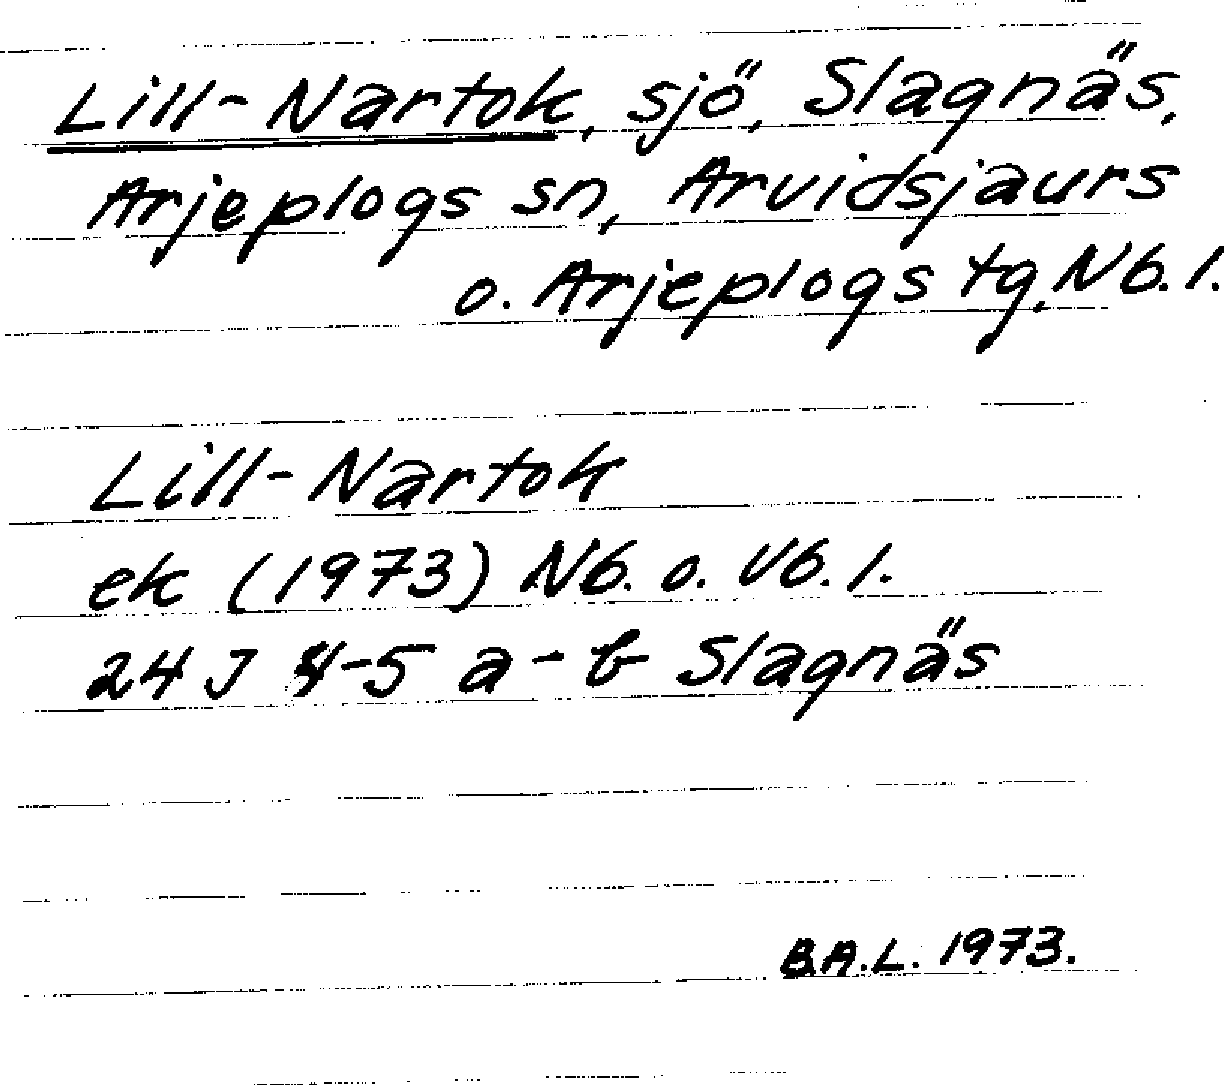 Lill-Nartok, sjö, Slagnäs,
Arjeplogs sn, Arvidsjaurs
o. Arjeplogs tg, Nb. l.
Lill-Nartok
ek (1973) Nb. o. Vb. l.
24 J 4-5 a-b Slagnäs
B.A.L. 1973.